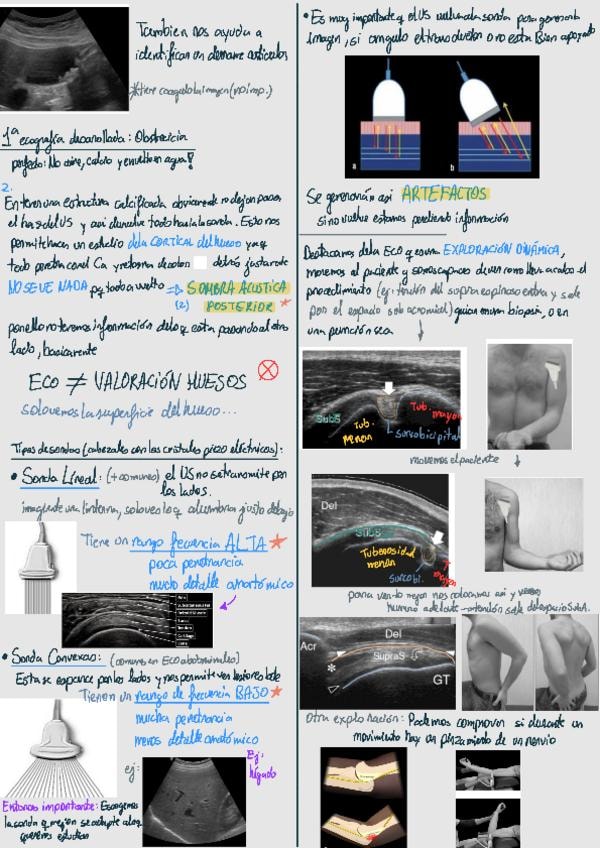 También nos ayuda a
identificar un derrame articular
*tiene coagulo la imagen (no imp.)
1ª ecografía desarrollada: Obstetricia
perfecto: No aire, calcio y envuelto en agua!
2.
En tener una estructura calcificada obviamente no dejan pasar
el haz del US y así devuelve todo hacia la sonda. Esto nos
permite hacer un estudio de la CORTICAL del hueso ya q
todo por el detrás justo de
NO SE VE NADA pq todo a vuelto => SOMBRA ACUSTICA
(2) POSTERIOR *
por ello no tenemos información de lo q esta pasando al otro
lado, basicamente
ECO ≠ VALORACIÓN HUESOS
solo vemos la superficie del hueso...
Tipos de sondas (cabezales con los cristales piezo eléctricos):
• Sonda Líneal: (+ comunes) el US no se transmite por
los lados.
imaginate una linterna, solo ves lo q alumbra justo debajo
Tiene un rango frecuencia ALTA *
poca penetrancia
mucho detalle anatómico
• Sonda Convexas: (comunes en Eco abdominales)
Esta se esparce por los lados y nos permite ver
Tienen un rango de frecuencia BAJO *
mucha penetrancia
menos detalle anatómico
ej:
Ej:
hígado
Entonces importante: Escogemos
la sonda q mejor se adapte a lo q
queremos estudiar
• Es muy importante q el US
imagen, si el transductor o no esta Bien apoyado
a
b
Se generarán así ARTEFACTOS
si no vuelve estamos perdiendo información
Destacamos de la ECO q es una EXPLORACIÓN DINÁMICA,
movemos al paciente y somos capaces de ver como lleva a cabo el
procedimiento (ej: tendón del supraespinoso entra y sale
por el espacio sub acromial) guiar una biopsia, o en
una punción sea
SubS
Tub.
menor
Tub. mayor
Surco bicipital
movemos el paciente
Del
SubS
Tuberosidad
menor
Surco bi.
mayor
para verlo mejor nos colocamos así y
humero adelante → tendón sale del espacio SubA.
Acr
Del
SupraS
*
GT
Otra exploración: Podemos comprobar si durante un
movimiento hay un pinzamiento de un nervio